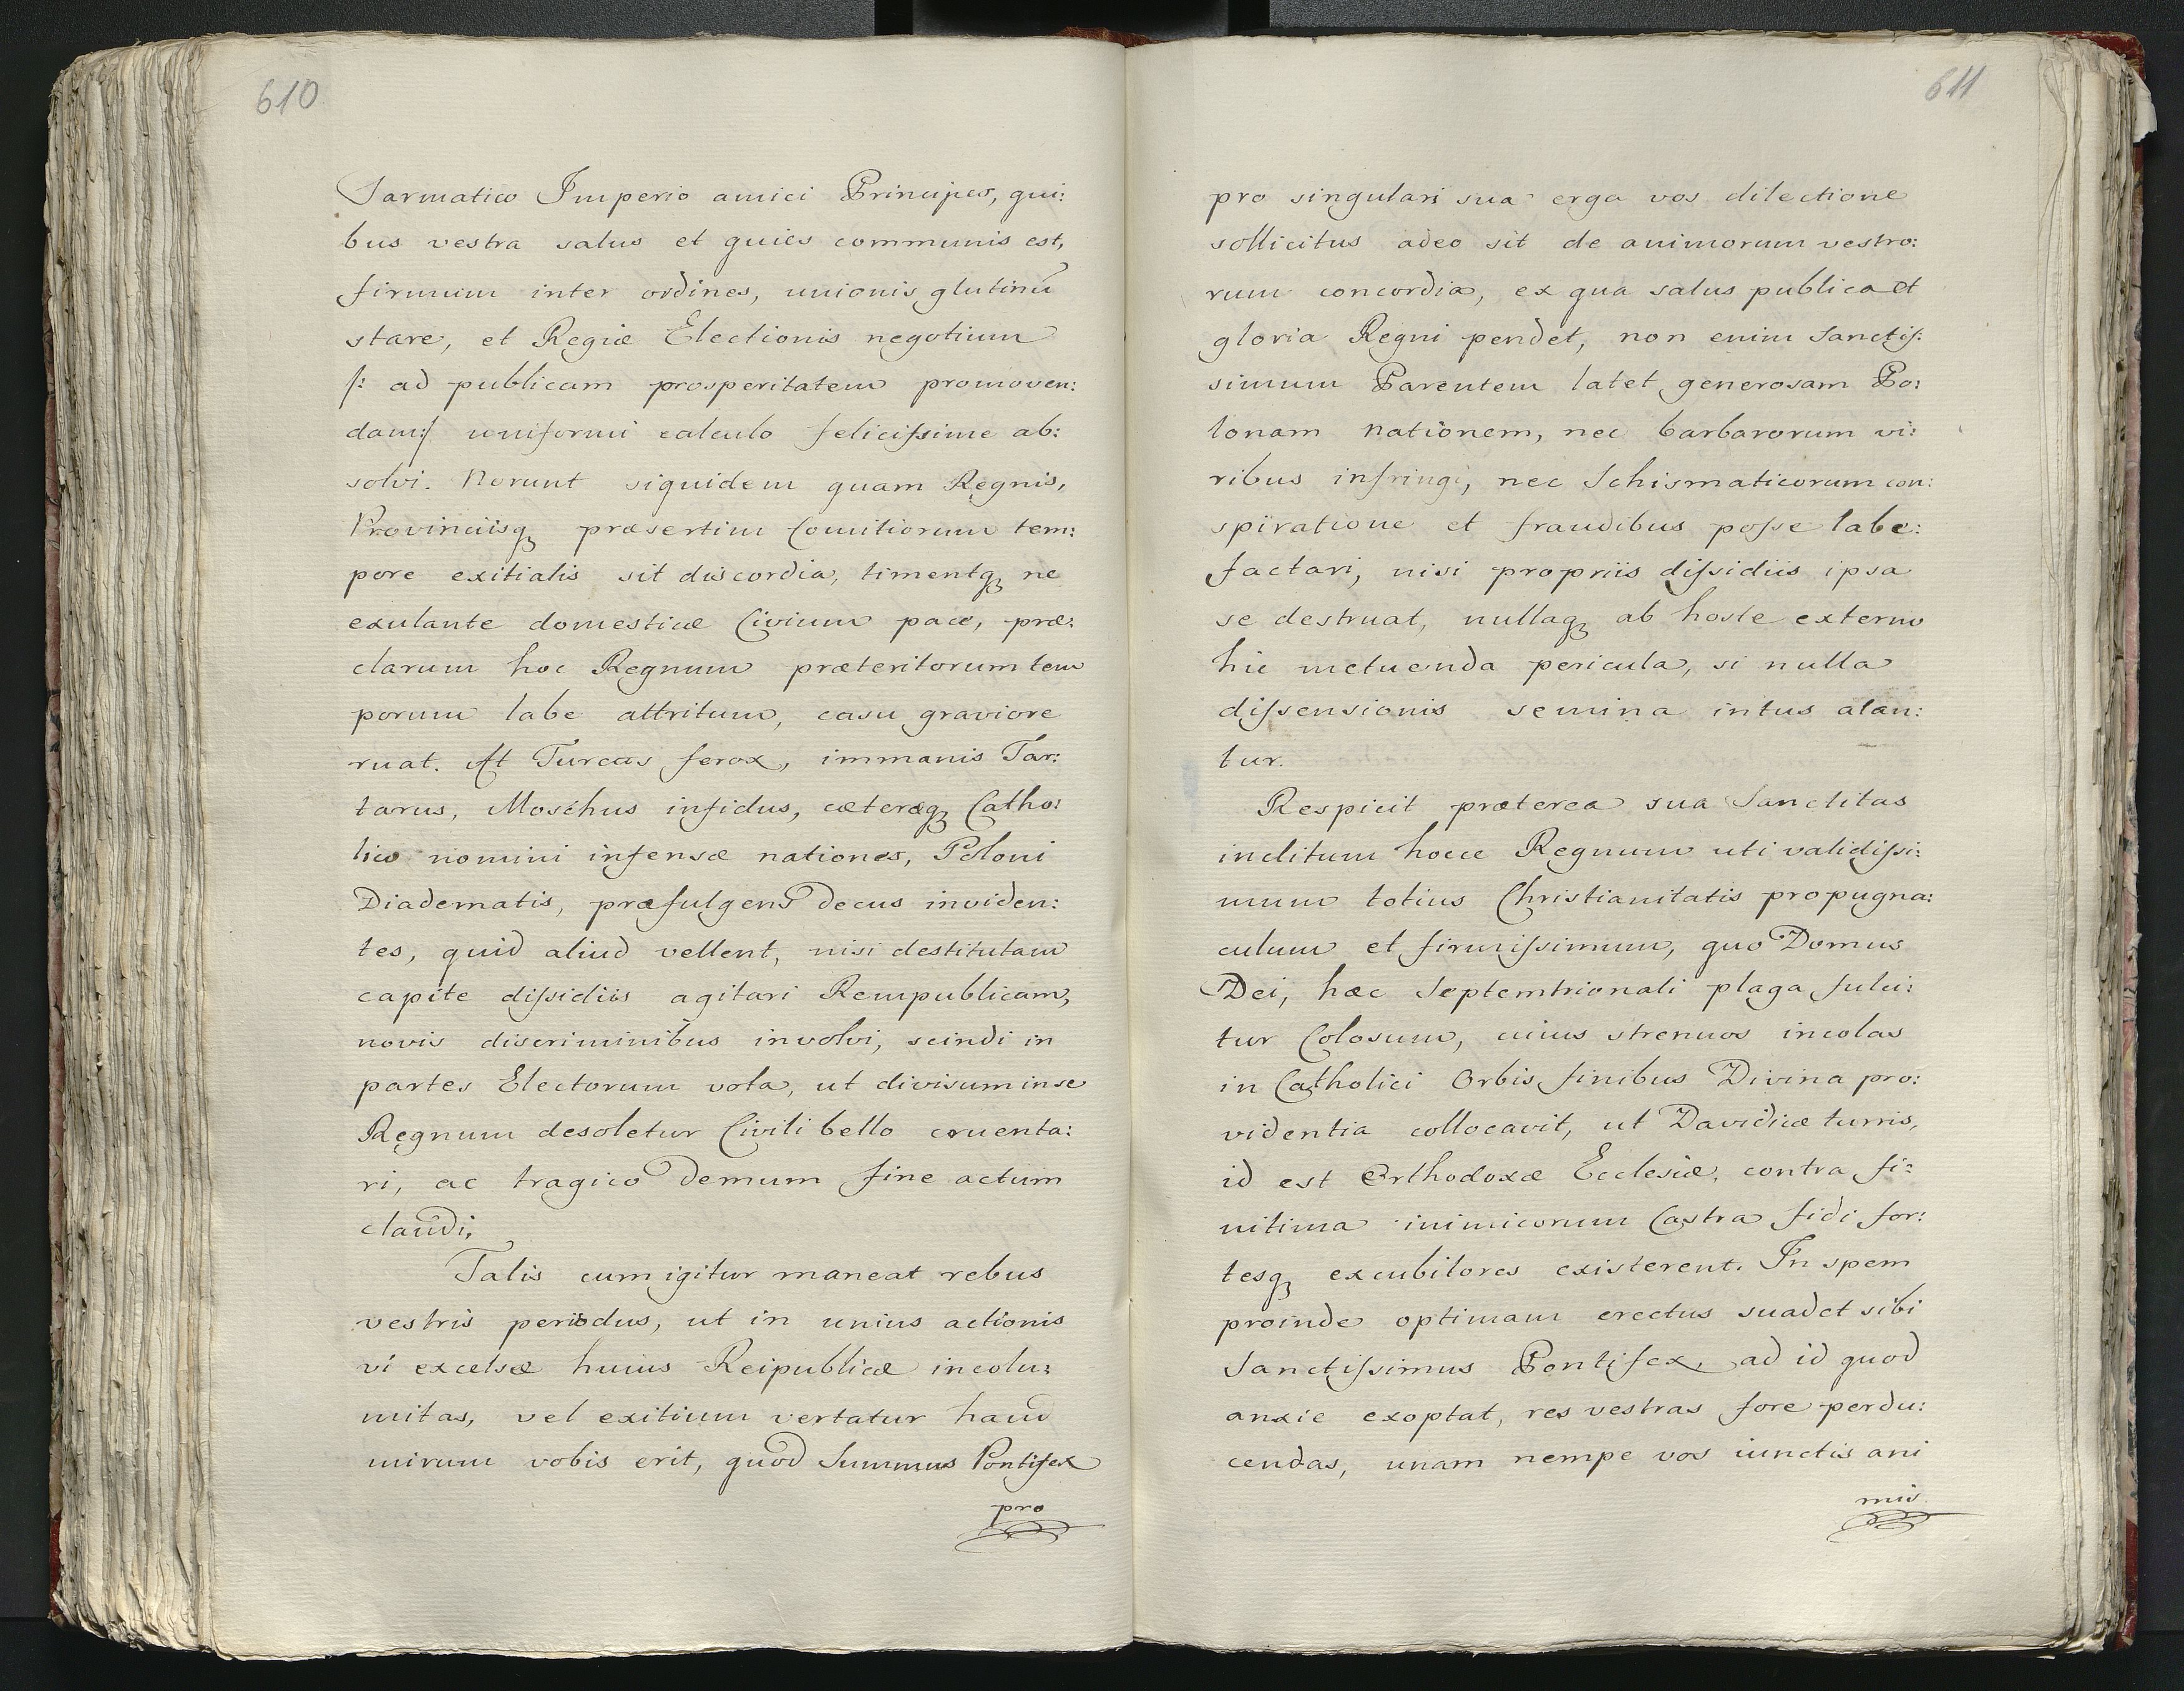 610
Sarmatico Imperio amici Principes, qui:
bus vestra salus et quies communis est,
firmum inter ordines, unionis glutinū
stare, et Regiæ Electionis negotium
/: ad publicam prosperitatem promoven:
dam:/ uniformi calculo felicissime ab:
solvi. Norunt siquidem quam Regnis,
Provinciisq præsertim Comitiorum tem:
pore exitialis sit discordia, timentq ne
exulante domesticæ Civium pace, præ:
clarum hoc Regnum præteritorum tem
porum labe attritum, casu graviore
ruat. At Turcas ferox, immanis Tar:
tarus, Moschus infidus, cæteræq Catho:
lico nomini infensæ nationes, Poloni
Diadematis, præfulgens decus inviden:
tes, quid aliud vellent, nisi destitutam
capite dissidiis agitari Rempublicam,
novis discriminibus involvi, scindi in
partes Electorum vota, ut divisum in se
Regnum desoletur Civili bello cruenta:
ri, ac tragico demum fine actum
claudi.
Talis cum igitur maneat rebus
vestris periodus, ut in unius actionis
vi excelsæ huius Reipublicæ incolu:
mitas, vel exitium vertatur haud
mirum vobis erit, quod Summus Pontifex
pro
611
pro singulari sua erga vos dilectione
sollicitus adeo sit de animorum vestro:
rum concordia, ex qua salus publica et
gloria Regni pendet, non enim Sanctis:
simum Parentem latet generosam Po:
lonam nationem, nec barbarorum vi:
ribus infringi, nec Schismaticorum con:
spiratione et fraudibus posse labe:
factari, nisi propriis dissidiis ipsa
se destruat, nullaq ab hoste externo
hic metuenda pericula, si nulla
dissensionis semina intus alan:
tur.
Respicit præterea sua Sanctitas
inclitum hocce Regnum uti validissi:
mum totius Christianitatis propugna:
culum et firmissimum, quo Domus
Dei, hæc Septemtrionali plaga fulci:
tur Colosum, cuius strenuos incolas
in Catholici Orbis finibus Divina pro:
videntia collocavit, ut Davidicæ turris,
id est Orthodoxæ Ecclesiæ, contra fi:
nitima inimicorum Castra fidi for:
tesq excubitores existerent. In spem
proinde optimam erectus suadet sibi
Sanctissimus Pontifex, ad id quod
anxie exoptat, res vestras fore perdu:
cendas, unam nempe vos iunctis ani
mis